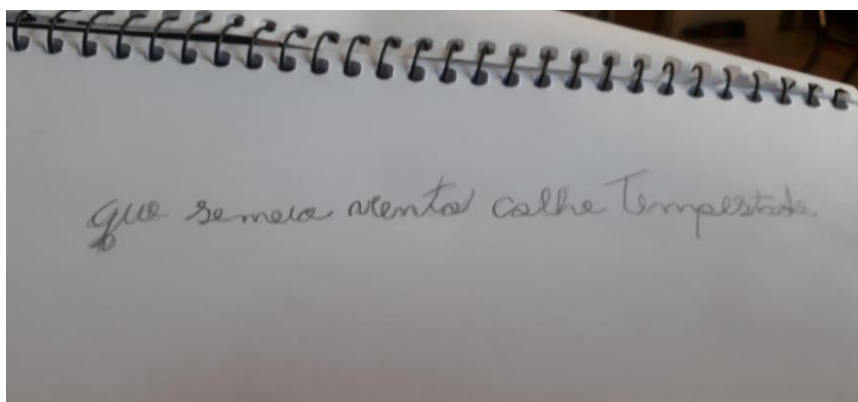 que semeia vento colhe Tempestade